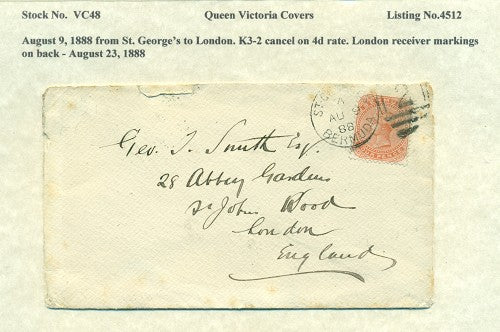 Stock No. VC48 Queen Victoria Covers Listing No.4512
August 9, 1888 from St. George's to London. K3-2 cancel on 4d rate. London receiver markings
on back - August 23, 1888
ST. G
A
AU 9
88
BERMUDA
2
Geo. T. Smith Esq.
28 Abbey Gardens
St Johns Wood
London
England